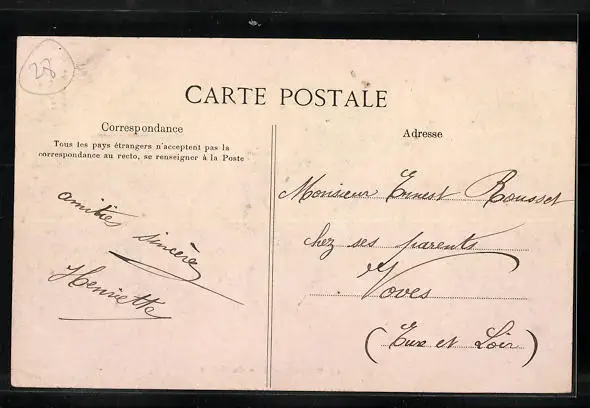 28
CARTE POSTALE
Correspondance
Tous les pays étrangers n'acceptent pas la
correspondance au recto, se renseigner à la Poste
amitiés sincères
Henriette
Adresse
Monsieur Ernest Rousset
chez ses parents
Voves
(Eure et Loir)